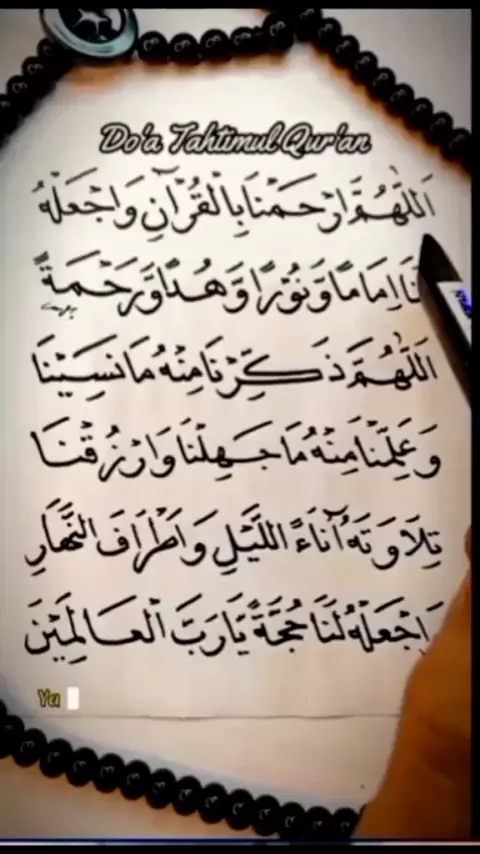 Do'a Tahtimul Qur'an
اَللّٰهُمَّ ارْحَمْنَا بِالْقُرْآنِ وَاجْعَلْهُ
نَا اِمَامًا وَنُوْرًا وَّهُدًا وَّرَحْمَةً
اَللّٰهُمَّ ذَكِّرْنَا مِنْهُ مَا نَسِيْنَا
وَعَلِّمْنَا مِنْهُ مَا جَهِلْنَا وَارْزُقْنَا
تِلَاوَتَهُ آنَاءَ اللَّيْلِ وَاَطْرَافَ النَّهَارِ
اِجْعَلْهُ لَنَا حُجَّةً يَارَبَّ الْعَالَمِيْنَ
Ya